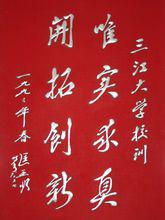 三江大学校训
唯实求真
开拓创新
一九九三年春